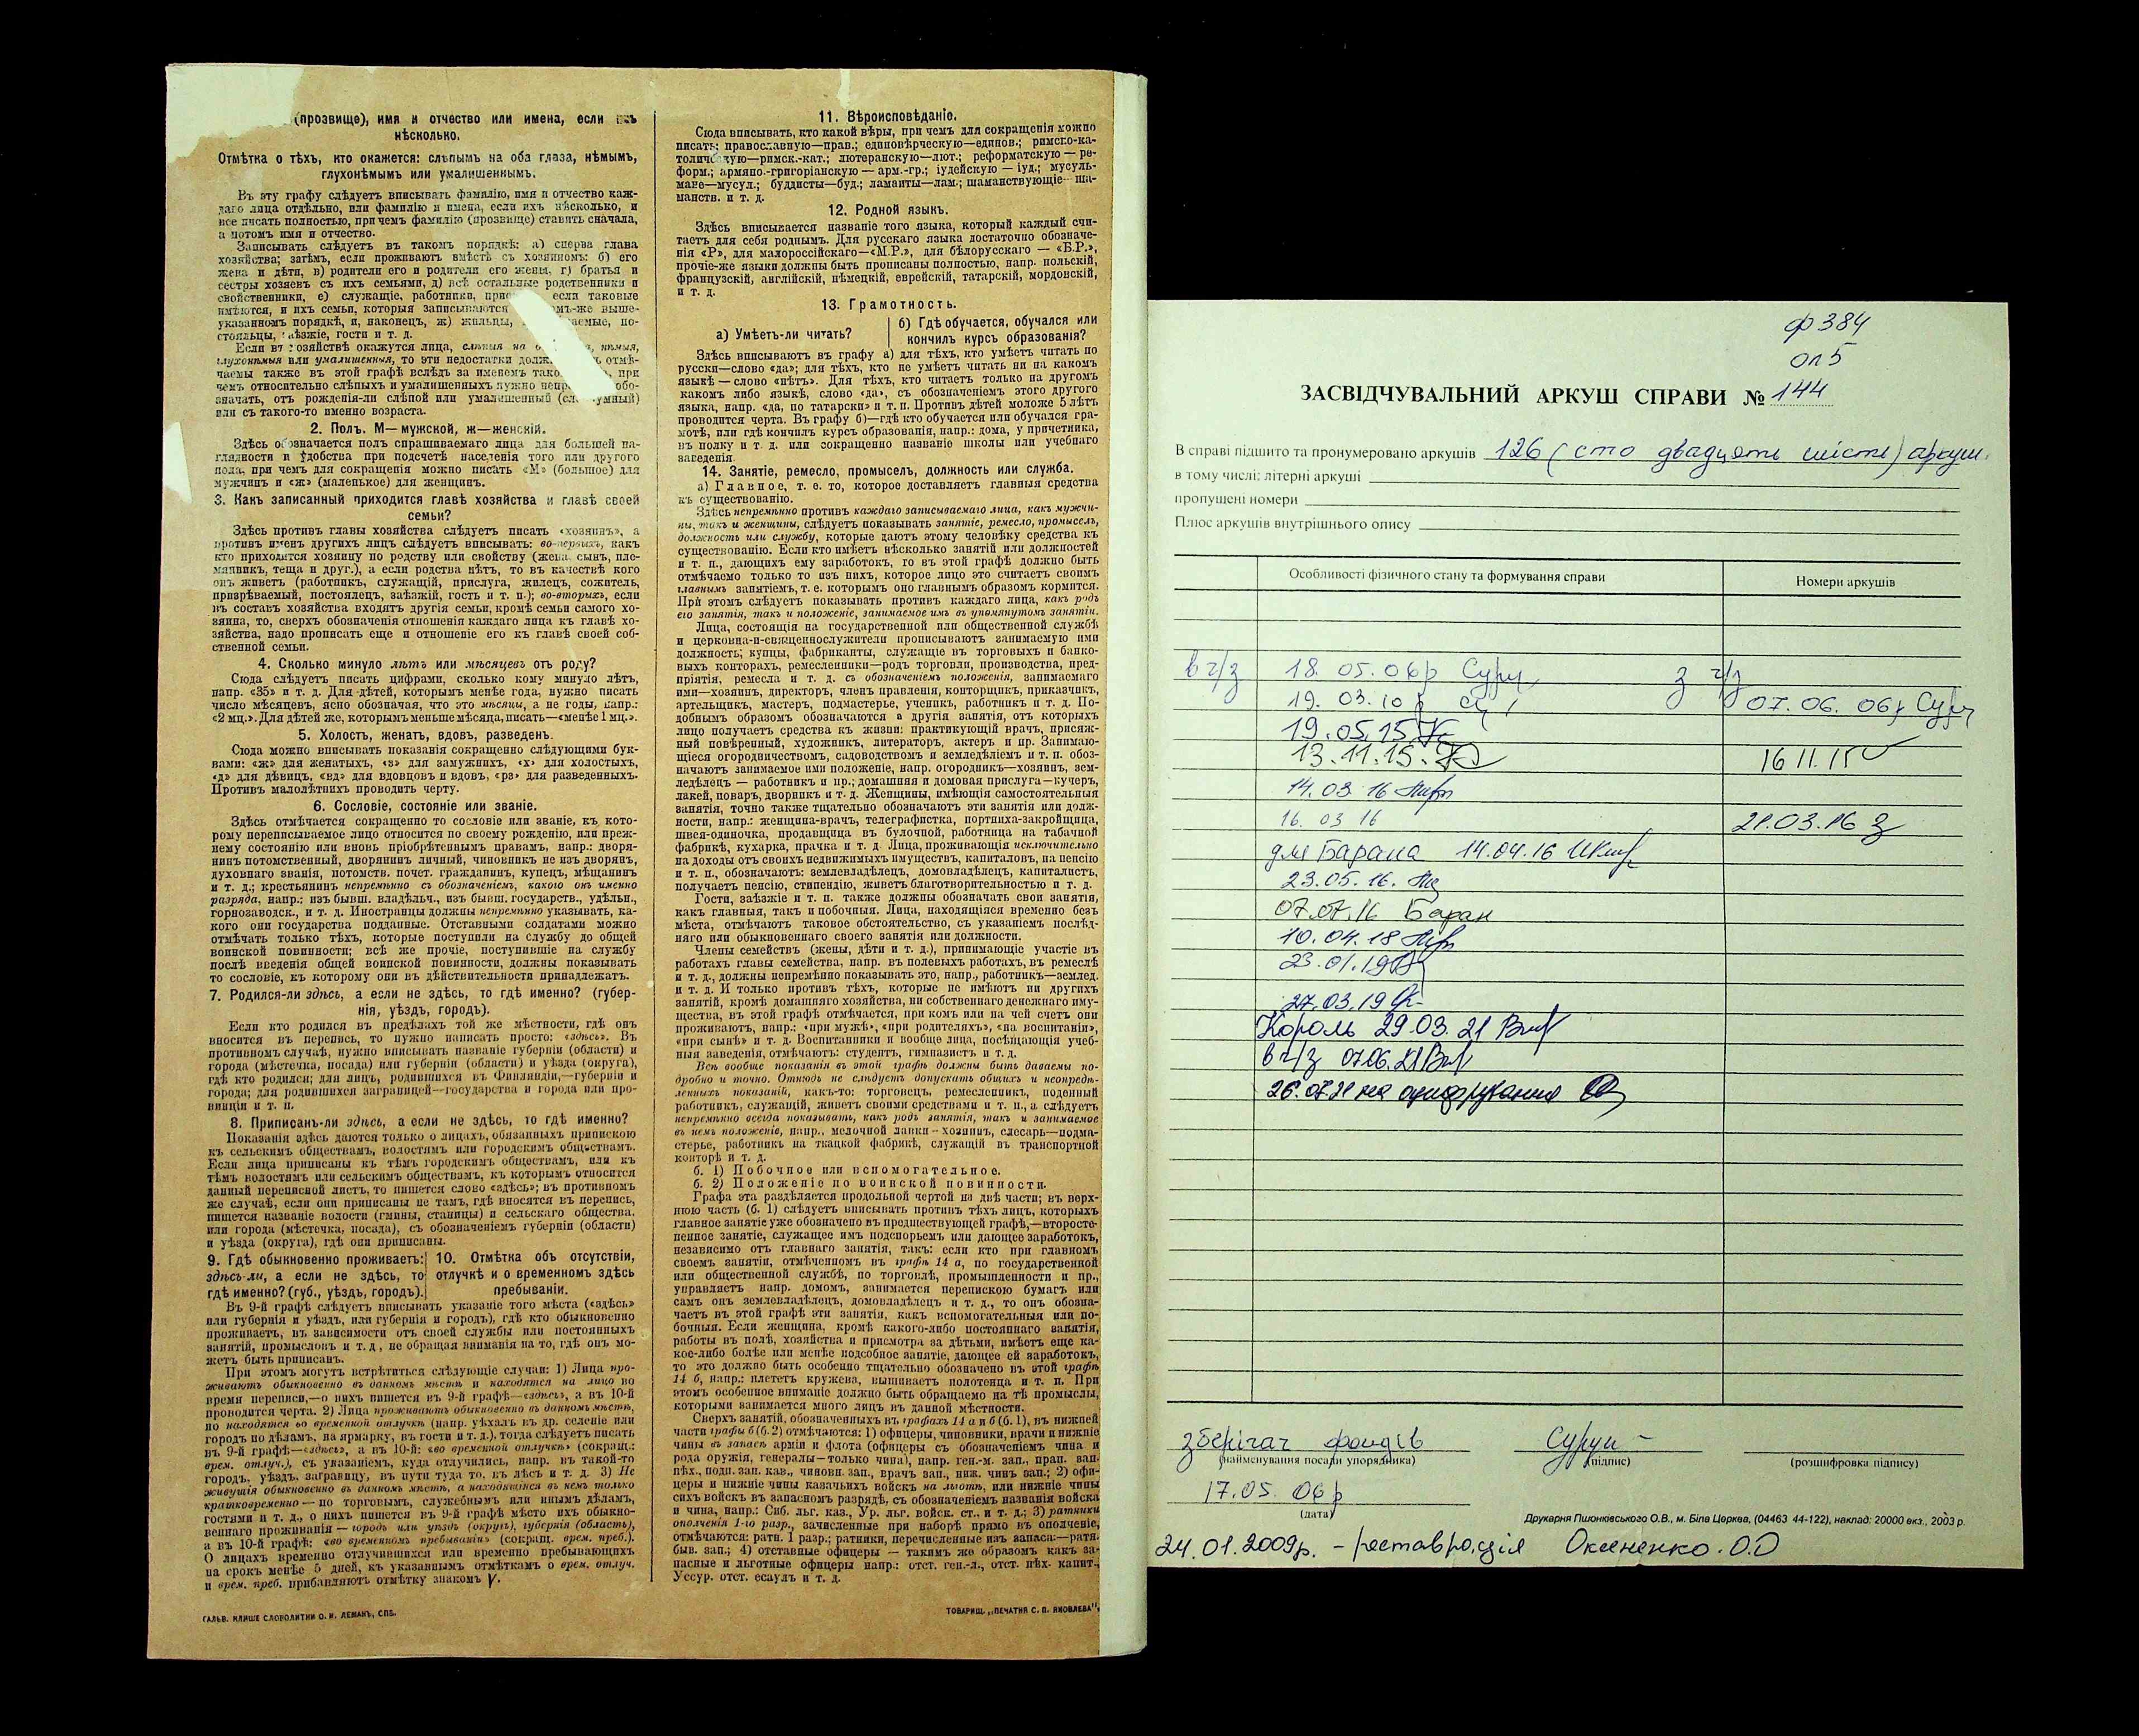 (прозвище), имя и отчество или имена, если ихъ
нѣсколько.
Отмѣтка о тѣхъ, кто окажется: слѣпымъ на оба глаза, нѣмымъ,
глухонѣмымъ или умалишеннымъ.
Въ эту графу слѣдуетъ вписывать фамилію, имя и отчество каж-
даго лица отдѣльно, или фамилію и имена, если ихъ нѣсколько, и
все писать полностью, при чемъ фамилію (прозвище) ставить сначала,
а потомъ имя и отчество.
Записывать слѣдуетъ въ такомъ порядкѣ: а) сперва глава
хозяйства; затѣмъ, если проживаютъ вмѣстѣ съ хозяиномъ: б) его
жена и дѣти, в) родители его и родители его жены, г) братья и
сестры хозяевъ съ ихъ семьями, д) всѣ остальные родственники и
свойственники, е) служащіе, работники, если таковые
имѣются, и ихъ семьи, которыя записываются въ выше-
указанномъ порядкѣ, и, наконецъ, ж) жильцы, по-
стояльцы, заѣзжіе, гости и т. д.
Если въ хозяйствѣ окажутся лица, слѣпыя на нѣмыя,
глухонѣмыя или умалишенныя, то эти недостатки отмѣ-
чаемы также въ этой графѣ вслѣдъ за именемъ при
чемъ относительно слѣпыхъ и умалишенныхъ нужно обо-
значать, отъ рожденія-ли слѣпой или умалишенный
или съ такого-то именно возраста.
2. Полъ. М—мужской, ж—женскій.
Здѣсь обозначается полъ спрашиваемаго лица для большей на-
глядности и удобства при подсчетѣ населенія того или другого
пола, при чемъ для сокращенія можно писать «М» (большое) для
мужчинъ и «ж» (маленькое) для женщинъ.
3. Какъ записанный приходится главѣ хозяйства и главѣ своей
семьи?
Здѣсь противъ главы хозяйства слѣдуетъ писать «хозяинъ», а
противъ именъ другихъ лицъ слѣдуетъ вписывать: во-первыхъ, какъ
кто приходится хозяину по родству или свойству (жена, сынъ, пле-
мянникъ, теща и друг.), а если родства нѣтъ, то въ качествѣ кого
онъ живетъ (работникъ, служащій, прислуга, жилецъ, сожитель,
призрѣваемый, постоялецъ, заѣзжій, гость и т. п.); во-вторыхъ, если
въ составъ хозяйства входятъ другія семьи, кромѣ семьи самого хо-
зяина, то, сверхъ обозначенія отношенія каждаго лица къ главѣ хо-
зяйства, надо прописать еще и отношеніе его къ главѣ своей соб-
ственной семьи.
4. Сколько минуло лѣтъ или мѣсяцевъ отъ роду?
Сюда слѣдуетъ писать цифрами, сколько кому минуло лѣтъ,
напр. «35» и т. д. Для дѣтей, которымъ менѣе года, нужно писать
число мѣсяцевъ, ясно обозначая, что это мѣсяцы, а не годы, напр.:
«2 мц.». Для дѣтей же, которымъ меньше мѣсяца, писать—«менѣе 1 мц.».
5. Холостъ, женатъ, вдовъ, разведенъ.
Сюда можно вписывать показанія сокращенно слѣдующими бук-
вами: «ж» для женатыхъ, «з» для замужнихъ, «х» для холостыхъ,
«д» для дѣвицъ, «вд» для вдовцовъ и вдовъ, «рз» для разведенныхъ.
Противъ малолѣтнихъ проводить черту.
6. Сословіе, состояніе или званіе.
Здѣсь отмѣчается сокращенно то сословіе или званіе, къ кото-
рому переписываемое лицо относится по своему рожденію, или преж-
нему состоянію или вновь пріобрѣтеннымъ правамъ, напр.: дворя-
нинъ потомственный, дворянинъ личный, чиновникъ не изъ дворянъ,
духовнаго званія, потомств. почет. гражданинъ, купецъ, мѣщанинъ
и т. д.; крестьянинъ непремѣнно съ обозначеніемъ, какого онъ именно
разряда, напр.: изъ бывш. владѣльч., изъ бывш. государств., удѣльн.,
горнозаводск., и т. д. Иностранцы должны непремѣнно указывать, ка-
кого они государства подданные. Отставными солдатами можно
отмѣчать только тѣхъ, которые поступили на службу до общей
воинской повинности; всѣ же прочіе, поступившіе на службу
послѣ введенія общей воинской повинности, должны показывать
то сословіе, къ которому они въ дѣйствительности принадлежатъ.
7. Родился-ли здѣсь, а если не здѣсь, то гдѣ именно? (губер-
нія, уѣздъ, городъ).
Если кто родился въ предѣлахъ той же мѣстности, гдѣ онъ
вносится въ перепись, то нужно написать просто: «здѣсь». Въ
противномъ случаѣ, нужно вписывать названіе губерніи (области) и
города (мѣстечка, посада) или губерніи (области) и уѣзда (округа),
гдѣ кто родился; для лицъ, родившихся въ Финляндіи,—губерніи и
города; для родившихся заграницей—государства и города или про-
винціи и т. п.
8. Приписанъ-ли здѣсь, а если не здѣсь, то гдѣ именно?
Показанія здѣсь даются только о лицахъ, обязанныхъ припискою
къ сельскимъ обществамъ, волостямъ или городскимъ обществамъ.
Если лица приписаны къ тѣмъ городскимъ обществамъ, или къ
тѣмъ волостямъ или сельскимъ обществамъ, къ которымъ относится
данный переписной листъ, то пишется слово «здѣсь»; въ противномъ
же случаѣ, если они приписаны не тамъ, гдѣ вносятся въ перепись,
пишется названіе волости (гмины, станицы) и сельскаго общества,
или города (мѣстечка, посада), съ обозначеніемъ губерніи (области)
и уѣзда (округа), гдѣ они приписаны.
9. Гдѣ обыкновенно проживаетъ:
здѣсь-ли, а если не здѣсь, то
гдѣ именно? (губ., уѣздъ, городъ).
10. Отмѣтка объ отсутствіи,
отлучкѣ и о временномъ здѣсь
пребываніи.
Въ 9-й графѣ слѣдуетъ вписывать указаніе того мѣста («здѣсь»
или губернія и уѣздъ, или губернія и городъ), гдѣ кто обыкновенно
проживаетъ, въ зависимости отъ своей службы или постоянныхъ
занятій, промысловъ и т. д., не обращая вниманія на то, гдѣ онъ мо-
жетъ быть приписанъ.
При этомъ могутъ встрѣтиться слѣдующіе случаи: 1) Лица про-
живаютъ обыкновенно въ данномъ мѣстѣ и находятся на лицо во
время переписи,—о нихъ пишется въ 9-й графѣ—«здѣсь», а въ 10-й
проводится черта. 2) Лица проживаютъ обыкновенно въ данномъ мѣстѣ,
но находятся во временной отлучкѣ (напр. уѣхалъ въ др. селеніе или
городъ по дѣламъ, на ярмарку, въ гости и т. д.), тогда слѣдуетъ писать
въ 9-й графѣ—«здѣсь», а въ 10-й: «во временной отлучкѣ» (сокращ.:
врем. отлуч.), съ указаніемъ, куда отлучились, напр. въ такой-то
городъ, уѣздъ, заграницу, въ пути туда то, въ лѣсъ и т. д. 3) Не
живущія обыкновенно въ данномъ мѣстѣ, а находящіяся въ немъ только
кратковременно — по торговымъ, служебнымъ или инымъ дѣламъ,
гостями и т. д., о нихъ пишется въ 9-й графѣ мѣсто ихъ обыкно-
веннаго проживанія — городъ или уѣздъ (округъ), губернія (область),
а въ 10-й графѣ: «во временномъ пребываніи» (сокращ. врем. преб.).
О лицахъ временно отлучившихся или временно пребывающихъ
на срокъ менѣе 5 дней, къ указаннымъ отмѣткамъ о врем. отлуч.
и врем. преб. прибавляютъ отмѣтку знакомъ V.
ГАЛЬВ. КЛИШЕ СЛОВОЛИТНИ О. И. ЛЕМАНЪ, СПБ.
11. Вѣроисповѣданіе.
Сюда вписывать, кто какой вѣры, при чемъ для сокращенія можно
писать: православную—прав.; единовѣрческую—единов.; римско-ка-
толическую—римск.-кат.; лютеранскую—лют.; реформатскую — ре-
форм.; армяно.-григоріанскую — арм.-гр.; іудейскую — іуд.; мусуль-
мане—мусул.; буддисты—буд.; ламаиты—лам.; шаманствующіе—ша-
манств. и т. д.
12. Родной языкъ.
Здѣсь вписывается названіе того языка, который каждый счи-
таетъ для себя роднымъ. Для русскаго языка достаточно обозначе-
нія «Р», для малороссійскаго—«М.Р.», для бѣлорусскаго — «Б.Р.»,
прочіе-же языки должны быть прописаны полностью, напр. польскій,
французскій, англійскій, нѣмецкій, еврейскій, татарскій, мордовскій,
и т. д.
13. Грамотность.
а) Умѣетъ-ли читать?
б) Гдѣ обучается, обучался или
кончилъ курсъ образованія?
Здѣсь вписываютъ въ графу а) для тѣхъ, кто умѣетъ читать по
русски—слово «да»; для тѣхъ, кто не умѣетъ читать ни на какомъ
языкѣ — слово «нѣтъ». Для тѣхъ, кто читаетъ только на другомъ
какомъ либо языкѣ, слово «да», съ обозначеніемъ этого другого
языка, напр. «да, по татарски» и т. п. Противъ дѣтей моложе 5 лѣтъ
проводится черта. Въ графу б)—гдѣ кто обучается или обучался гра-
мотѣ, или гдѣ кончилъ курсъ образованія, напр.: дома, у причетника,
въ полку и т. д. или сокращенно названіе школы или учебнаго
заведенія.
14. Занятіе, ремесло, промыселъ, должность или служба.
а) Главное, т. е. то, которое доставляетъ главныя средства
къ существованію.
Здѣсь непремѣнно противъ каждаго записываемаго лица, какъ мужчи-
ны, такъ и женщины, слѣдуетъ показывать занятіе, ремесло, промыселъ,
должность или службу, которые даютъ этому человѣку средства къ
существованію. Если кто имѣетъ нѣсколько занятій или должностей
и т. п., дающихъ ему заработокъ, то въ этой графѣ должно быть
отмѣчаемо только то изъ нихъ, которое лицо это считаетъ своимъ
главнымъ занятіемъ, т. е. которымъ оно главнымъ образомъ кормится.
При этомъ слѣдуетъ показывать противъ каждаго лица, какъ родъ
его занятія, такъ и положеніе, занимаемое имъ въ упомянутомъ занятіи.
Лица, состоящія на государственной или общественной службѣ
и церковно-и-священнослужители прописываютъ занимаемую ими
должность; купцы, фабриканты, служащіе въ торговыхъ и банко-
выхъ конторахъ, ремесленники—родъ торговли, производства, пред-
пріятія, ремесла и т. д. съ обозначеніемъ положенія, занимаемаго
ими—хозяинъ, директоръ, членъ правленія, конторщикъ, приказчикъ,
артельщикъ, мастеръ, подмастерье, ученикъ, работникъ и т. д. По-
добнымъ образомъ обозначаются и другія занятія, отъ которыхъ
лицо получаетъ средства къ жизни: практикующій врачъ, присяж-
ный повѣренный, художникъ, литераторъ, актеръ и пр. Занимаю-
щіеся огородничествомъ, садоводствомъ и земледѣліемъ и т. п. обоз-
начаютъ занимаемое ими положеніе, напр. огородникъ—хозяинъ, зем-
ледѣлецъ — работникъ и пр.; домашняя и домовая прислуга—кучеръ,
лакей, поваръ, дворникъ и т. д. Женщины, имѣющія самостоятельныя
занятія, точно также тщательно обозначаютъ эти занятія или долж-
ности, напр.: женщина-врачъ, телеграфистка, портниха-закройщица,
швея-одиночка, продавщица въ булочной, работница на табачной
фабрикѣ, кухарка, прачка и т. д. Лица, проживающія исключительно
на доходы отъ своихъ недвижимыхъ имуществъ, капиталовъ, на пенсію
и т. п., обозначаютъ: землевладѣлецъ, домовладѣлецъ, капиталистъ,
получаетъ пенсію, стипендію, живетъ благотворительностью и т. д.
Гости, заѣзжіе и т. п. также должны обозначать свои занятія,
какъ главныя, такъ и побочныя. Лица, находящіяся временно безъ
мѣста, отмѣчаютъ таковое обстоятельство, съ указаніемъ послѣд-
няго или обыкновеннаго своего занятія или должности.
Члены семействъ (жены, дѣти и т. д.), принимающіе участіе въ
работахъ главы семейства, напр. въ полевыхъ работахъ, въ ремеслѣ
и т. д., должны непремѣнно показывать это, напр., работникъ—землед.
и т. д. И только противъ тѣхъ, которые не имѣютъ ни другихъ
занятій, кромѣ домашняго хозяйства, ни собственнаго денежнаго иму-
щества, въ этой графѣ отмѣчается, при комъ или на чей счетъ они
проживаютъ, напр.: «при мужѣ», «при родителяхъ», «на воспитаніи»,
«при сынѣ» и т. д. Воспитанники и вообще лица, посѣщающія учеб-
ныя заведенія, отмѣчаютъ: студентъ, гимназистъ и т. д.
Всѣ вообще показанія въ этой графѣ должны быть даваемы по-
дробно и точно. Отнюдь не слѣдуетъ допускать общихъ и неопредѣ-
ленныхъ показаній, какъ-то: торговецъ, ремесленникъ, поденный
работникъ, служащій, живетъ своими средствами и т. п., а слѣдуетъ
непремѣнно всегда показывать, какъ родъ занятія, такъ и занимаемое
въ немъ положеніе, напр., мелочной лавки—хозяинъ, слесарь—подма-
стерье, работникъ на ткацкой фабрикѣ, служащій въ транспортной
конторѣ и т. д.
б. 1) Побочное или вспомогательное.
б. 2) Положеніе по воинской повинности.
Графа эта раздѣляется продольной чертой на двѣ части; въ верх-
нюю часть (б. 1) слѣдуетъ вписывать противъ тѣхъ лицъ, которыхъ
главное занятіе уже обозначено въ предшествующей графѣ,—второсте-
пенное занятіе, служащее имъ подспорьемъ или дающее заработокъ,
независимо отъ главнаго занятія, такъ: если кто при главномъ
своемъ занятіи, отмѣченномъ въ графѣ 14 а, по государственной
или общественной службѣ, по торговлѣ, промышленности и пр.,
управляетъ напр. домомъ, занимается перепискою бумагъ или
самъ онъ землевладѣлецъ, домовладѣлецъ и т. д., то онъ обозна-
чаетъ въ этой графѣ эти занятія, какъ вспомогательныя или по-
бочныя. Если женщина, кромѣ какого-либо постояннаго занятія,
работы въ полѣ, хозяйства и присмотра за дѣтьми, имѣетъ еще ка-
кое-либо болѣе или менѣе подсобное занятіе, дающее ей заработокъ,
то это должно быть особенно тщательно обозначено въ этой графѣ
14 б, напр.: плететъ кружева, вышиваетъ полотенца и т. п. При
этомъ особенное вниманіе должно быть обращаемо на тѣ промыслы,
которыми занимается много лицъ въ данной мѣстности.
Сверхъ занятій, обозначенныхъ въ графахъ 14 а и б (б. 1), въ нижней
части графы б (б. 2) отмѣчаются: 1) офицеры, чиновники, врачи и нижніе
чины въ запасѣ арміи и флота (офицеры съ обозначеніемъ чина и
рода оружія, генералы—только чина), напр. ген.-м. зап., прап. зап.
пѣх., подп. зап. кав., чиновн. зап., врач. зап., ниж. чинъ зап.; 2) офи-
церы и нижніе чины казачьихъ войскъ на льготѣ, или нижніе чины
сихъ войскъ въ запасномъ разрядѣ, съ обозначеніемъ названія войска
и чина, напр.: Сиб. льг. каз., Ур. льг. войск. ст., и т. д.; 3) ратники
ополченія 1-го разр., зачисленные при наборѣ прямо въ ополченіе,
отмѣчаются: ратн. 1 разр.; ратники, перечисленные изъ запаса:—ратн.
быв. зап.; 4) отставные офицеры — такимъ же образомъ какъ за-
пасные и льготные офицеры напр.: отст. ген.-л., отст. пѣх. капит.,
Уссур. отст. есаулъ и т. д.
ТОВАРИЩ. „ПЕЧАТНЯ С. П. ЯКОВЛЕВА".
ф 384
оп 5
ЗАСВІДЧУВАЛЬНИЙ АРКУШ СПРАВИ № 144
В справі підшито та пронумеровано аркушів 126 (сто двадцять шість) аркуш.
в тому числі: літерні аркуші
пропущені номери
Плюс аркушів внутрішнього опису
Особливості фізичного стану та формування справи Номери аркушів
в ч/з 18.05.06р Суру з ч/з
19.03.10р 07.06.06р Суру
19.05.15
13.11.15. 16 11.15
14.03 16
16.03 16 21.03.16
для Барана 14.04.16
23.05.16.
07.07.16 Баран
10.04.18
23.01.19
27.03.19
Король 29.03.21
в ч/з 07.06.21
26.07.21 на оцифрування
зберігач фондів Суруп
(найменування посади упорядника) (підпис) (розшифровка підпису)
17.05.06р
(дата)
Друкарня Пшонківського О.В., м. Біла Церква, (04463 44-122), наклад: 20000 екз., 2003 р.
24.01.2009р. – реставрація О.О